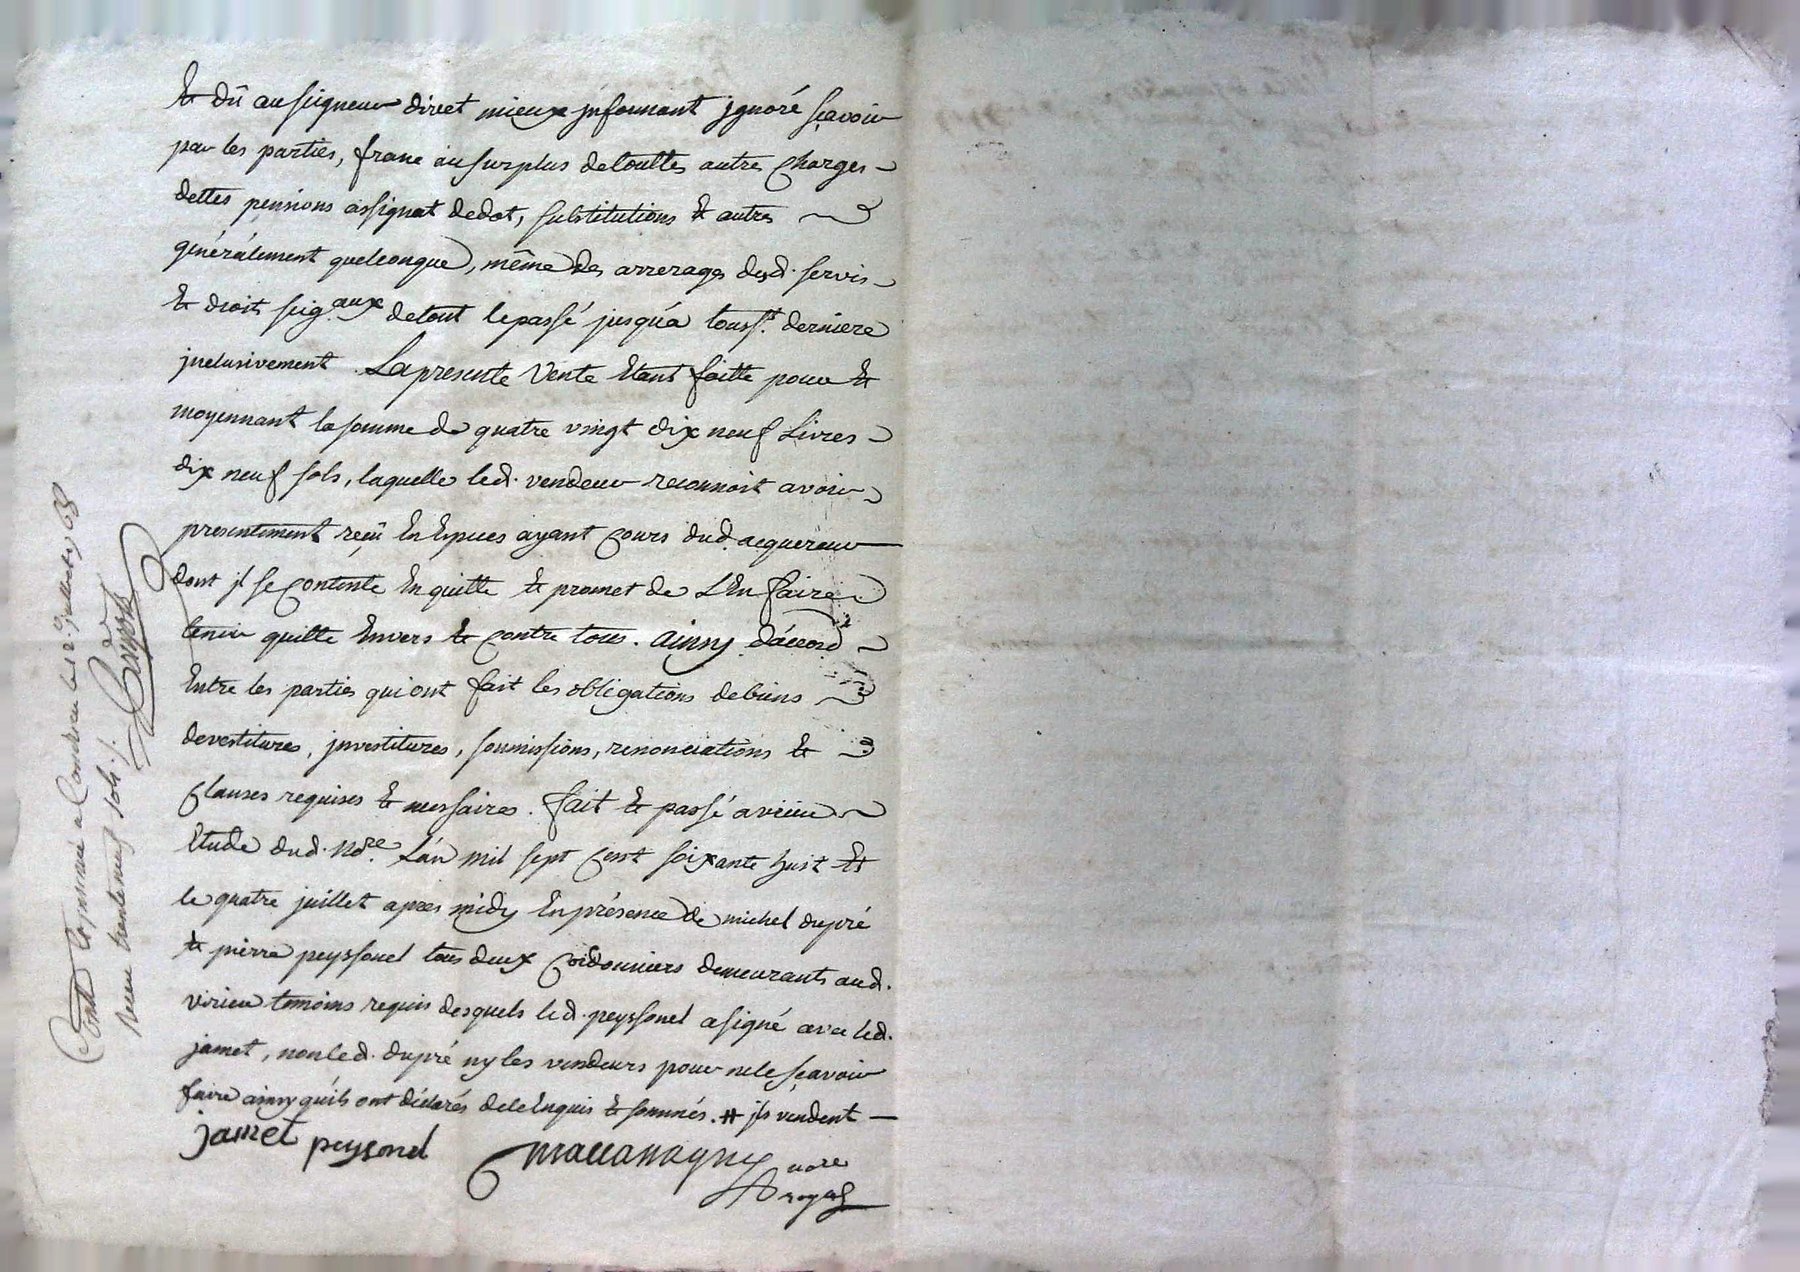 Et dû au seigneur direct mieux jnformant jgnoré sçavoir
par les parties, franc au surplus de toutte autres charges
dettes pensions assignat de dot, substitutions Et autres
généralement quelconque, même des arrerages desd. servis
Et droit seig.aux de tout le passé jusqu'a touss.t derniere
jnclusivement. La presente Vente Etant faitte pour Et
moyennant la somme de quatre vingt dix neuf Livres
dix neuf sols, laquelle led. vendeur reconnoit avoir
presentement reçû En Espices ayant cours dud. acquereur
dont jl se contente En quitte Et promet de L'En faire
tenir quitte Envers Et contre tous. ainsy d'accord
Entre les parties qui ont fait les obligations de biens
devestitures, jnvestitures, soumissions, renonciations Et
clauses requises Et nessaires. fait Et passé a virieu
Etude dud. no.re L'an mil sept cent soixante huit Et
le quatre juillet apres midy En présence de michel dupré
Et pierre peyssonel tous deux cordonniers demeurants aud.
virieu temoins requis desquels led. peyssonel a signé avec led.
jamet, non led. dupré ny les vendeurs pour ne le sçavoir
faire ainsy qu'ils ont déclarés de ce Enquis Et sommés. # jls vendent
jamet peysonel maccamagny no.re
royal
Cont.lé a Condrieu le 12 Juillet 1768
Reçu trente neuf sols ./.